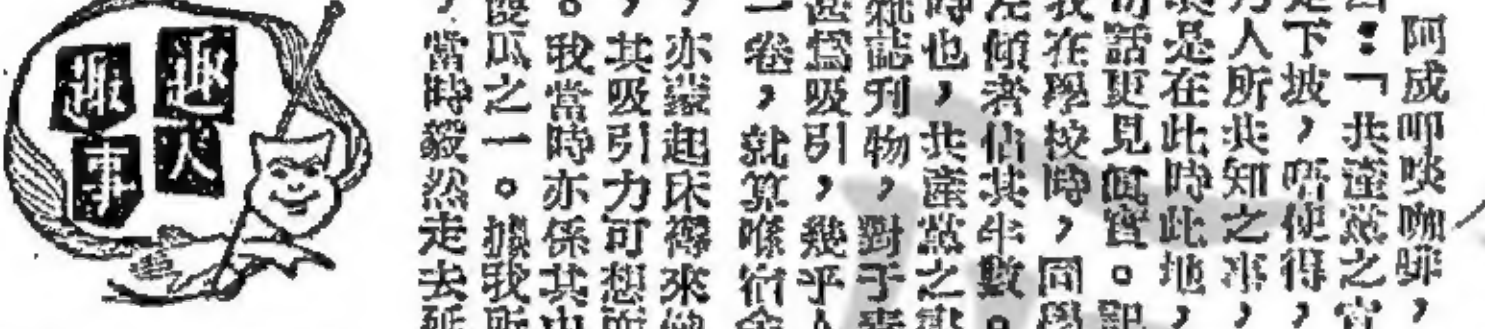 阿成叩啖咖啡，
：「共產黨之官
走下坡，唔使得，
人所共知之事，
是在此時此地，
話更見真實。記
我在學校時，同學
左傾者佔其半數。
時也，共產黨之書
雜誌刊物，對于青
甚爲吸引，幾乎人
一卷，就算喺宿舍
，亦蒙起床褥來偷
，其吸引力可想而
。我當時亦係其中
傻瓜之一。據我所
，當時毅然走去延
趣人
趣事